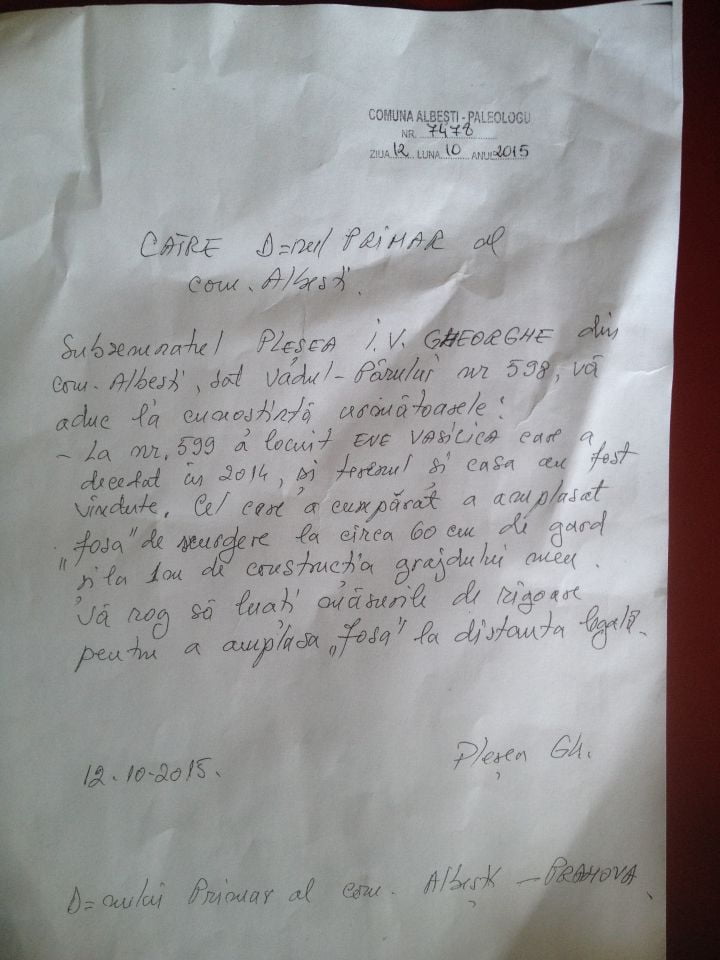 COMUNA ALBEȘTI - PALEOLOGU
NR. 7478
ZIUA 12 LUNA 10 ANUL 2015
CĂTRE D=nul PRIMAR al
com. Albești.
Subsemnatul PLEȘEA I.V. GHEORGHE din
com. Albești, sat Vadul-Părului nr 598, vă
aduc la cunostintă următoarele:
- La nr. 599 a locuit ENE VASILICA care a
decedat în 2014, și terenul și casa au fost
vîndute. Cel care a cumpărat a amplasat
„fosa" de scurgere la circa 60 cm de gard
și la 1m de constructia grajdului meu.
Vă rog să luati măsurile de rigoare
pentru a amplasa „fosa" la distanta legală.
12.10.2015.
Pleșea Gh.
D=nului Primar al com. Albești - PRAHOVA